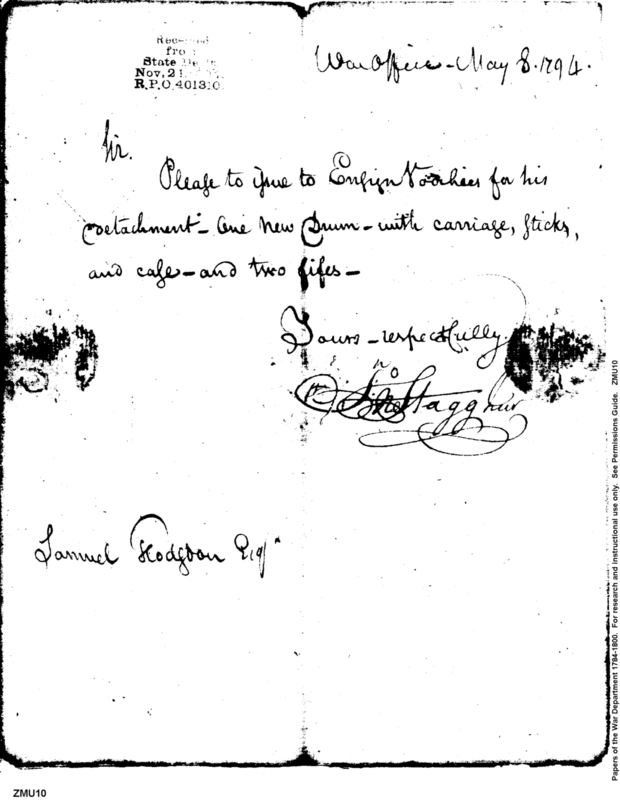 Received
from
State
Nov. 21
R.P.O. 401310
War Office - May 8. 1794.
Sir.
Please to issue to Ensign Voorhees for his
detachment - One new Drum - with carriage, sticks,
and case - and two fifes -
Yours - respectfully
Jno Stagg junr
Samuel Hodgdon Esqr
Papers of the War Department 1784-1800. For research and instructional use only. See Permissions Guide. ZMU10
ZMU10